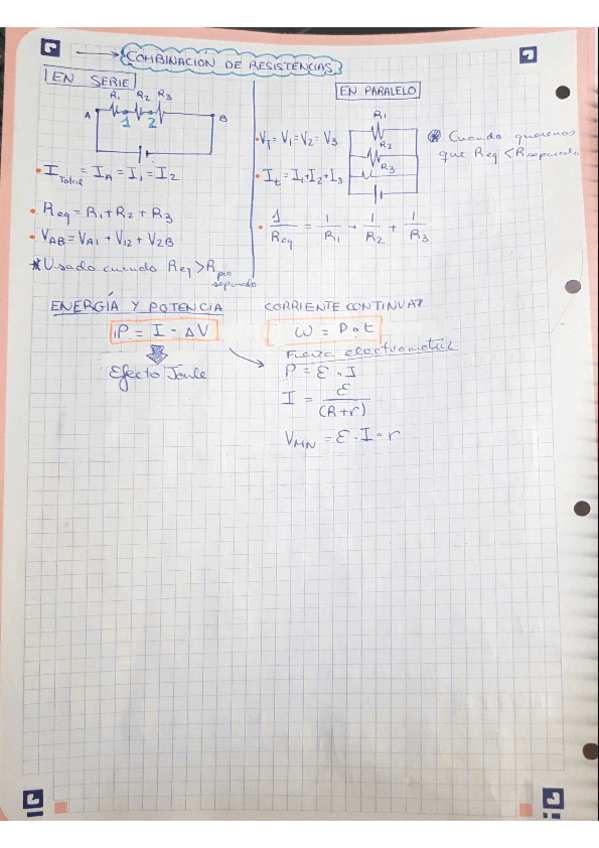 COMBINACIÓN DE RESISTENCIAS
EN SERIE
R₁ R₂ R₃
A 1 2 B
• I Total = I_A = I₁ = I₂
• Req = R₁ + R₂ + R₃
• V_AB = V_A1 + V_12 + V_2B
* Usado cuando Req > R por separado
EN PARALELO
R₁
R₂
R₃
• V_T = V₁ = V₂ = V₃
• I_t = I₁ + I₂ + I₃
• 1/Req = 1/R₁ + 1/R₂ + 1/R₃
* Cuando queremos
que Req < R separado
ENERGÍA Y POTENCIA
P = I · ΔV
Efecto Joule
CORRIENTE CONTINUA
W = P · t
Fuerza electromotriz
P = ε · I
I = ε/(R+r)
V_MN = ε · I · r